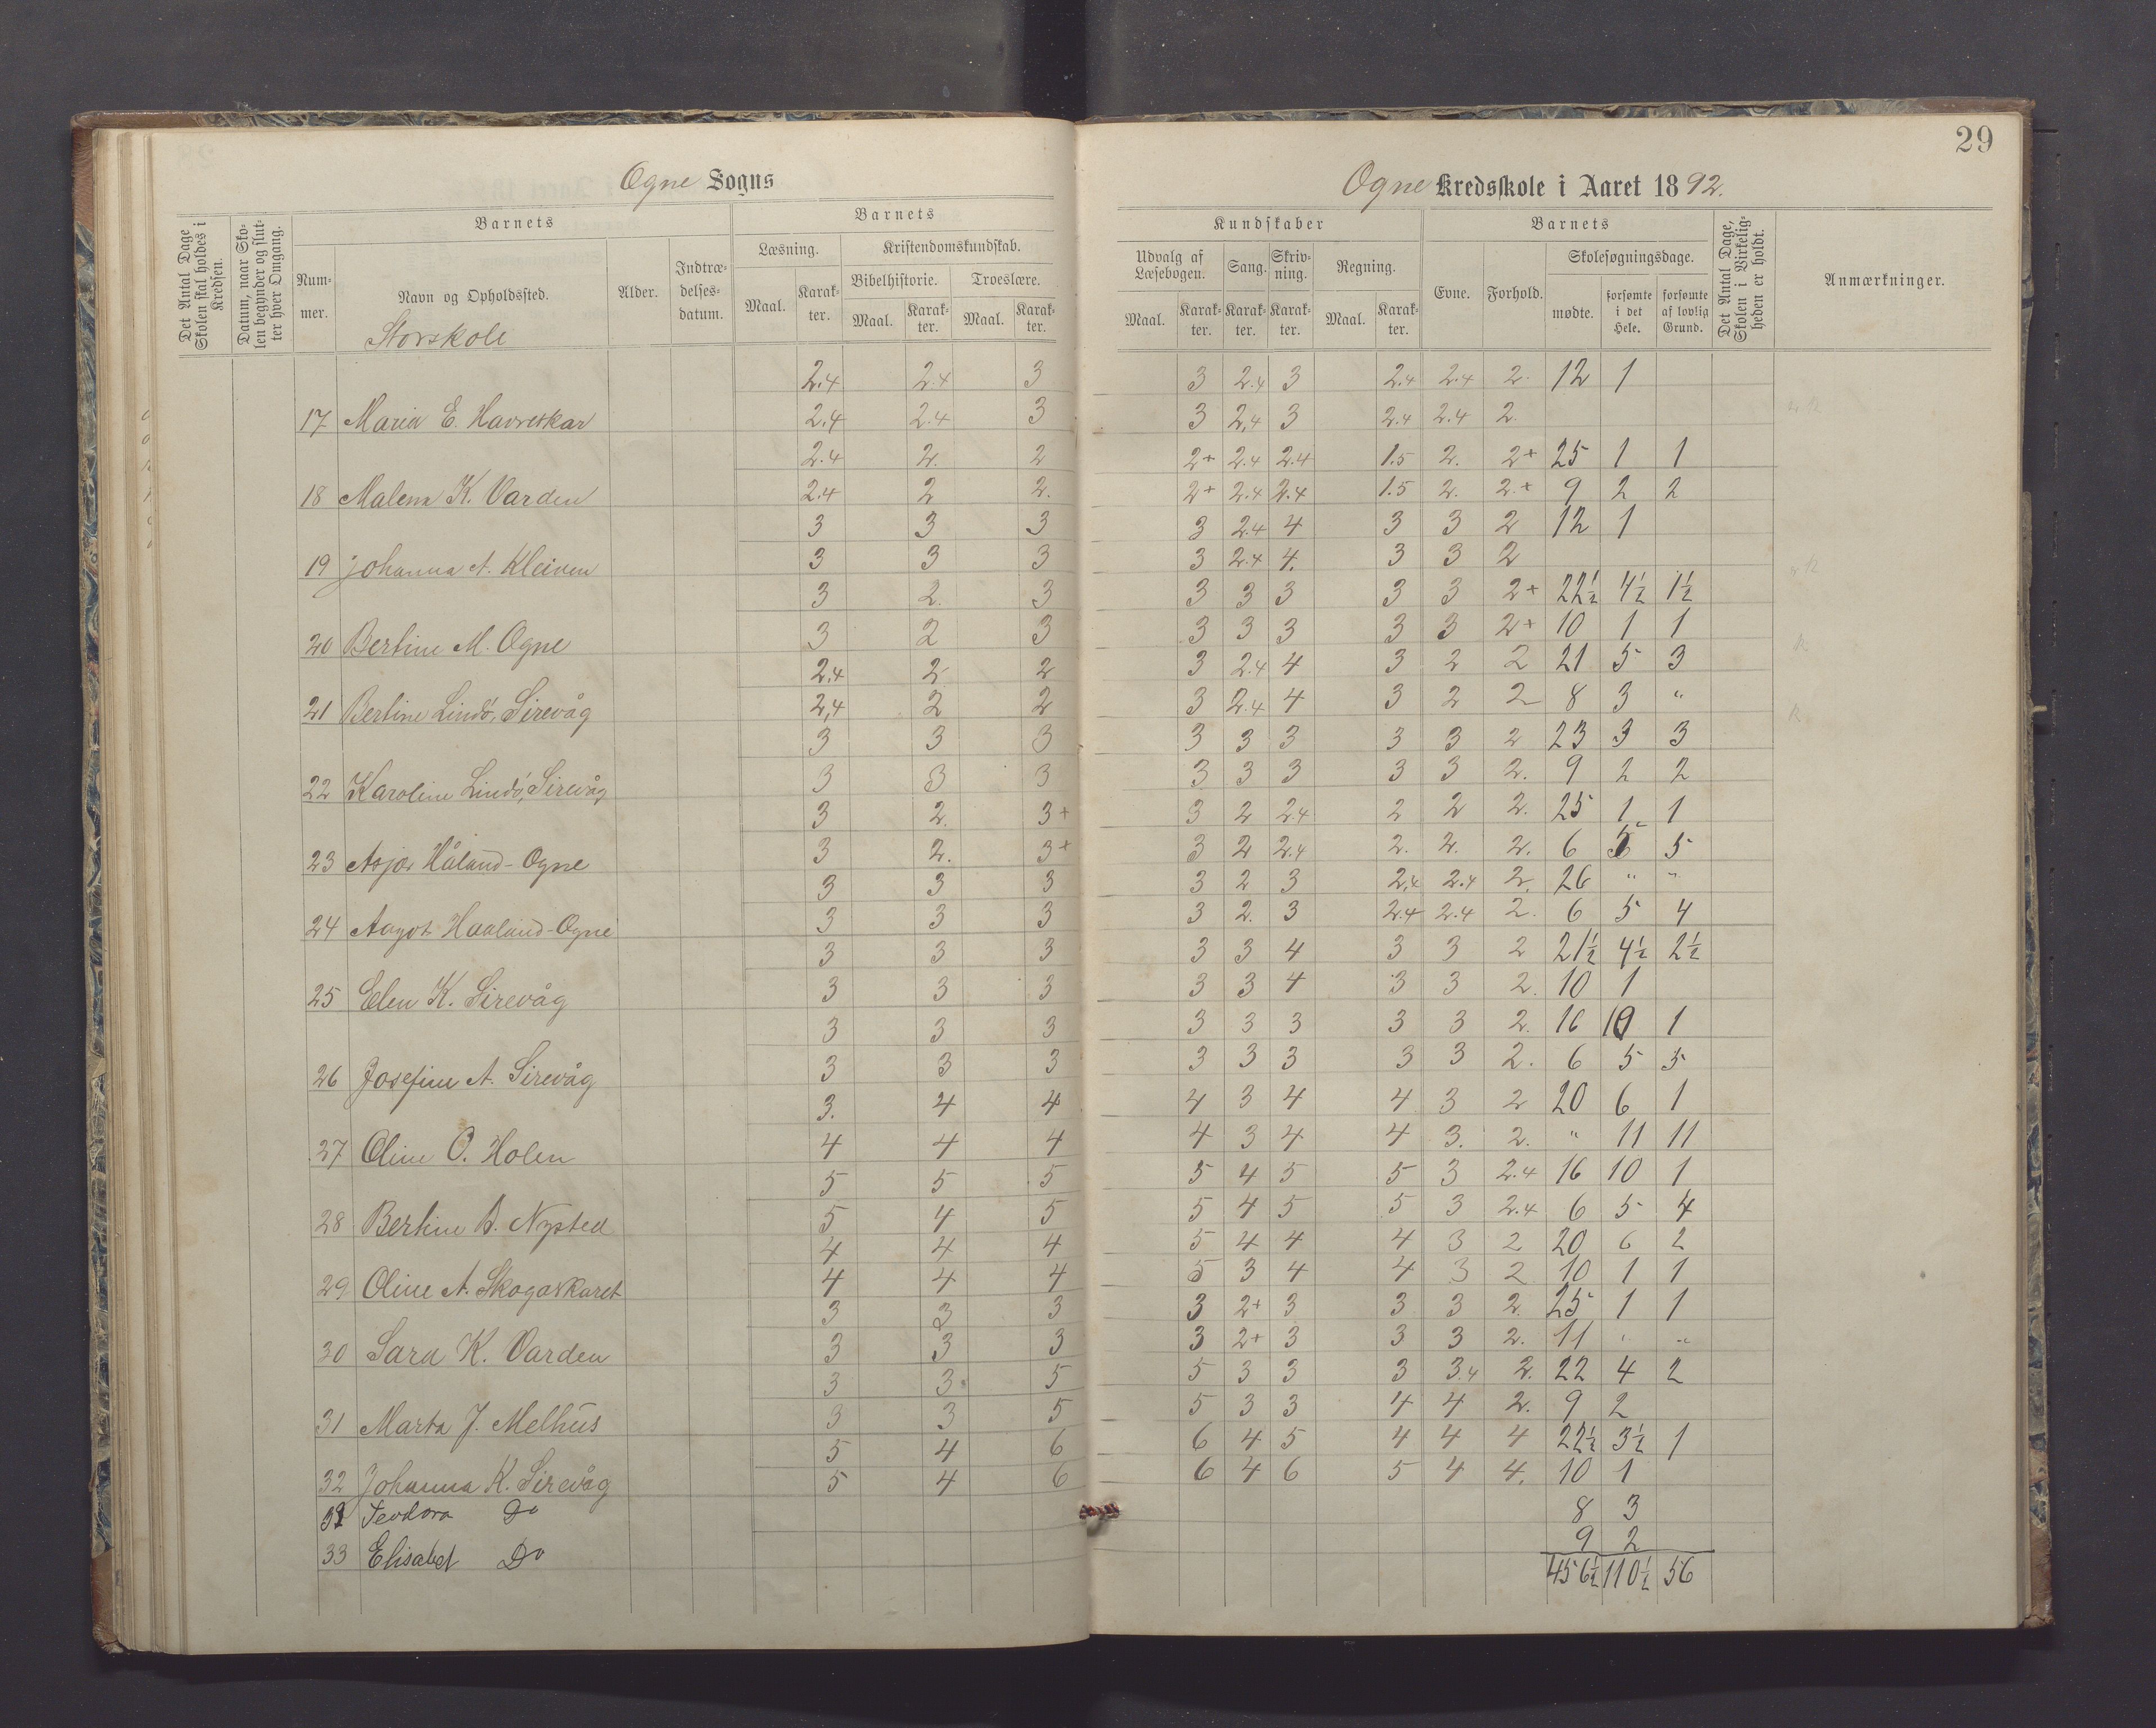 29
Ogne Sogns
Ogne Kredsskole i Aaret 1892.
Det Antal Dage Skolen skal holdes i Kredsen.
Datum, naar Skolen begynder og slutter hver Omgang.
Barnets
Nummer.
Navn og Opholdssted.
Alder.
Indtrædelsesdatum.
Barnets
Læsning.
Kristendomskundskab.
Maal.
Karakter.
Bibelhistorie.
Troeslære.
Maal.
Karakter.
Maal.
Karakter.
Kundskaber
Udvalg af Læsebogen.
Sang.
Skrivning.
Regning.
Maal.
Karakter.
Karakter.
Karakter.
Maal.
Karakter.
Barnets
Evne.
Forhold.
Skolesøgningsdage.
mødte.
forsømte i det Hele.
forsømte af lovlig Grund.
Det Antal Dage, Skolen i Virkeligheden er holdt.
Anmærkninger.
Storskole
2.4 2.4 3 3 2.4 3 2.4 2.4 2. 12 1
17 Maria E. Havreskar 2.4 2.4 3 3 2,4 3 2.4 2.4 2.
2.4 2. 2 2+ 2.4 2.4 1.5 2. 2+ 25 1 1
18 Malena K. Varden 2.4 2 2. 2+ 2.4 2.4 1.5 2. 2.+ 9 2 2
3 3 3 3 2.4 4 3 3 2 12 1
19 Johanna A. Kleiven 3 3 3 3 2.4 4. 3 3 2
3 2. 3 3 3 3 3 3 2+ 22½ 4½ 1½
20 Bertine M. Ogne 3 2 3 3 3 3 3 3 2+ 10 1 1
2,4 2 2 3 2.4 4 3 2 2 21 5 3
21 Bertine Lindö, Sirevåg 2,4 2 2 3 2.4 4 3 2 2 8 3 "
3 3 3 3 3 3 3 3 2 23 3 3
22 Karoline Lindö, Sirevåg 3 3 3 3 3 3 3 3 2. 9 2 2
3 2. 3+ 3 2 2.4 2 2 2. 25 1 1
23 Asjer Håland-Ogne 3 2. 3+ 3 2 2.4 2. 2. 2. 6 5 5
3 3 3 3 2 3 2,4 2.4 2. 26 " "
24 Aagot Haaland-Ogne 3 3 3 3 2. 3 2.4 2.4 2. 6 5 4
3 3 3 3 3 4 3 3 2 21½ 4½ 2½
25 Elen K. Sirevåg 3 3 3 3 3 4 3 3 2. 10 1
3 3 3 3 3 3 3 3 2. 16 10 1
26 Josefine A. Sirevåg 3 3 3 3 3 3 3 3 2. 6 5 5
3. 4 4 4 3 4 4 3 2 20 6 1
27 Oline O. Holen 4 4 4 4 3 4 4 3. 2. " 11 11
5 5 5 5 4 5 5 3 2.4 16 10 1
28 Bertine B. Nysted 5 4 5 5 4 5 5 3 2.4 6 5 4
4 4 4 5 4 4 4 3 2 20 6 2
29 Oline A. Skogaskaret 4 4 4 5 3 4 4 3 2 10 1 1
3 3 3 3 2+ 3 3 3 2 25 1 1
30 Sara K. Varden 3 3 3 3 2+ 3 3 3 2. 11 " "
3 3. 5 5 3 3 3 3.4 2. 22 4 2
31 Marta J. Melhus 3 3 5 5 3 3 4 4 2. 9 2
5 4 6 6 4 5 4 4 4 22½ 3½ 1
32 Johanna K. Sirevåg 5 4 6 6 4 6 5 4 4. 10 1
32 Teodora Do 8 3
33 Elisabet Do 9 2
456½ 110½ 56